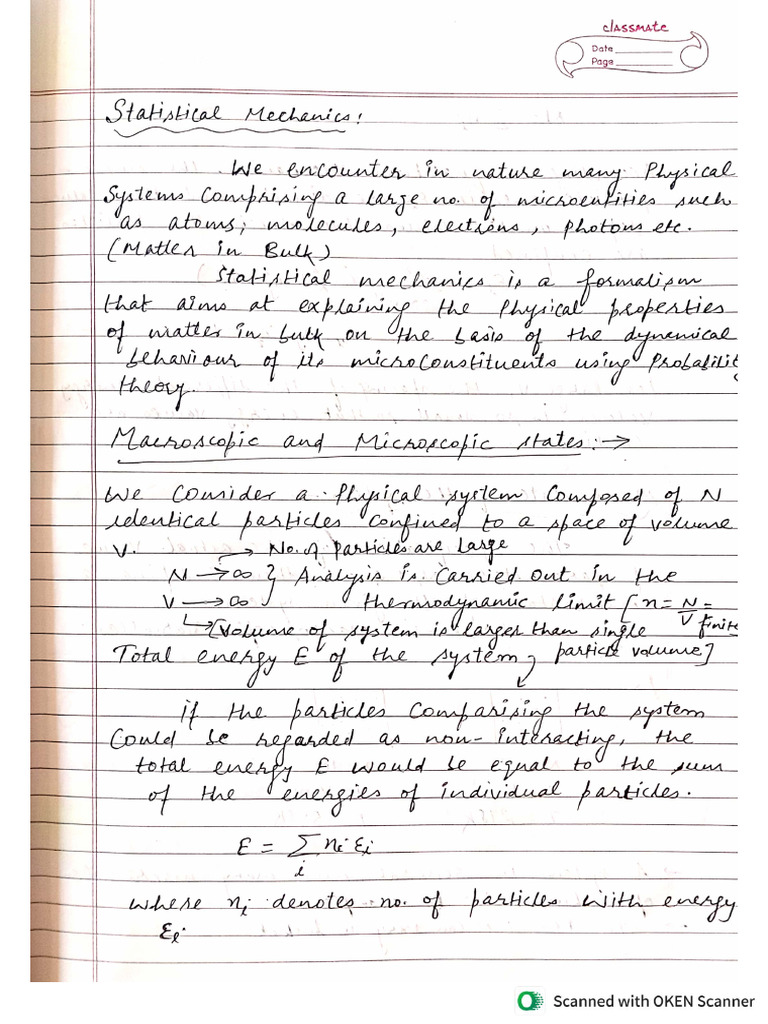 classmate
Date
Page
Statistical Mechanics:
We encounter in nature many Physical
Systems Comprising a large no. of microentities such
as atoms, molecules, electrons, photons etc.
(Matter in Bulk)
Statistical mechanics is a formalism
that aims at explaining the Physical properties
of matter in bulk on the basis of the dynemical
behaviour of its microconstituents using Probability
theory.
Macroscopic and Microscopic states:→
We Consider a Physical system Composed of N
identical particles Confined to a space of volume
V.
→ No. of particles are large
N → ∞ } Analysis is Carried Out in the
V → ∞ thermodynamic limit [n = N/V = finite
↳ [Volume of system is larger than single
particle volume]
Total energy E of the system,
if the particles Comparising the system
Could be regarded as non-interacting, the
total energy E would be equal to the sum
of the energies of individual particles.
E = Σ nᵢ εᵢ
i
where nᵢ denotes no. of particles with energy
εᵢ.
Scanned with OKEN Scanner